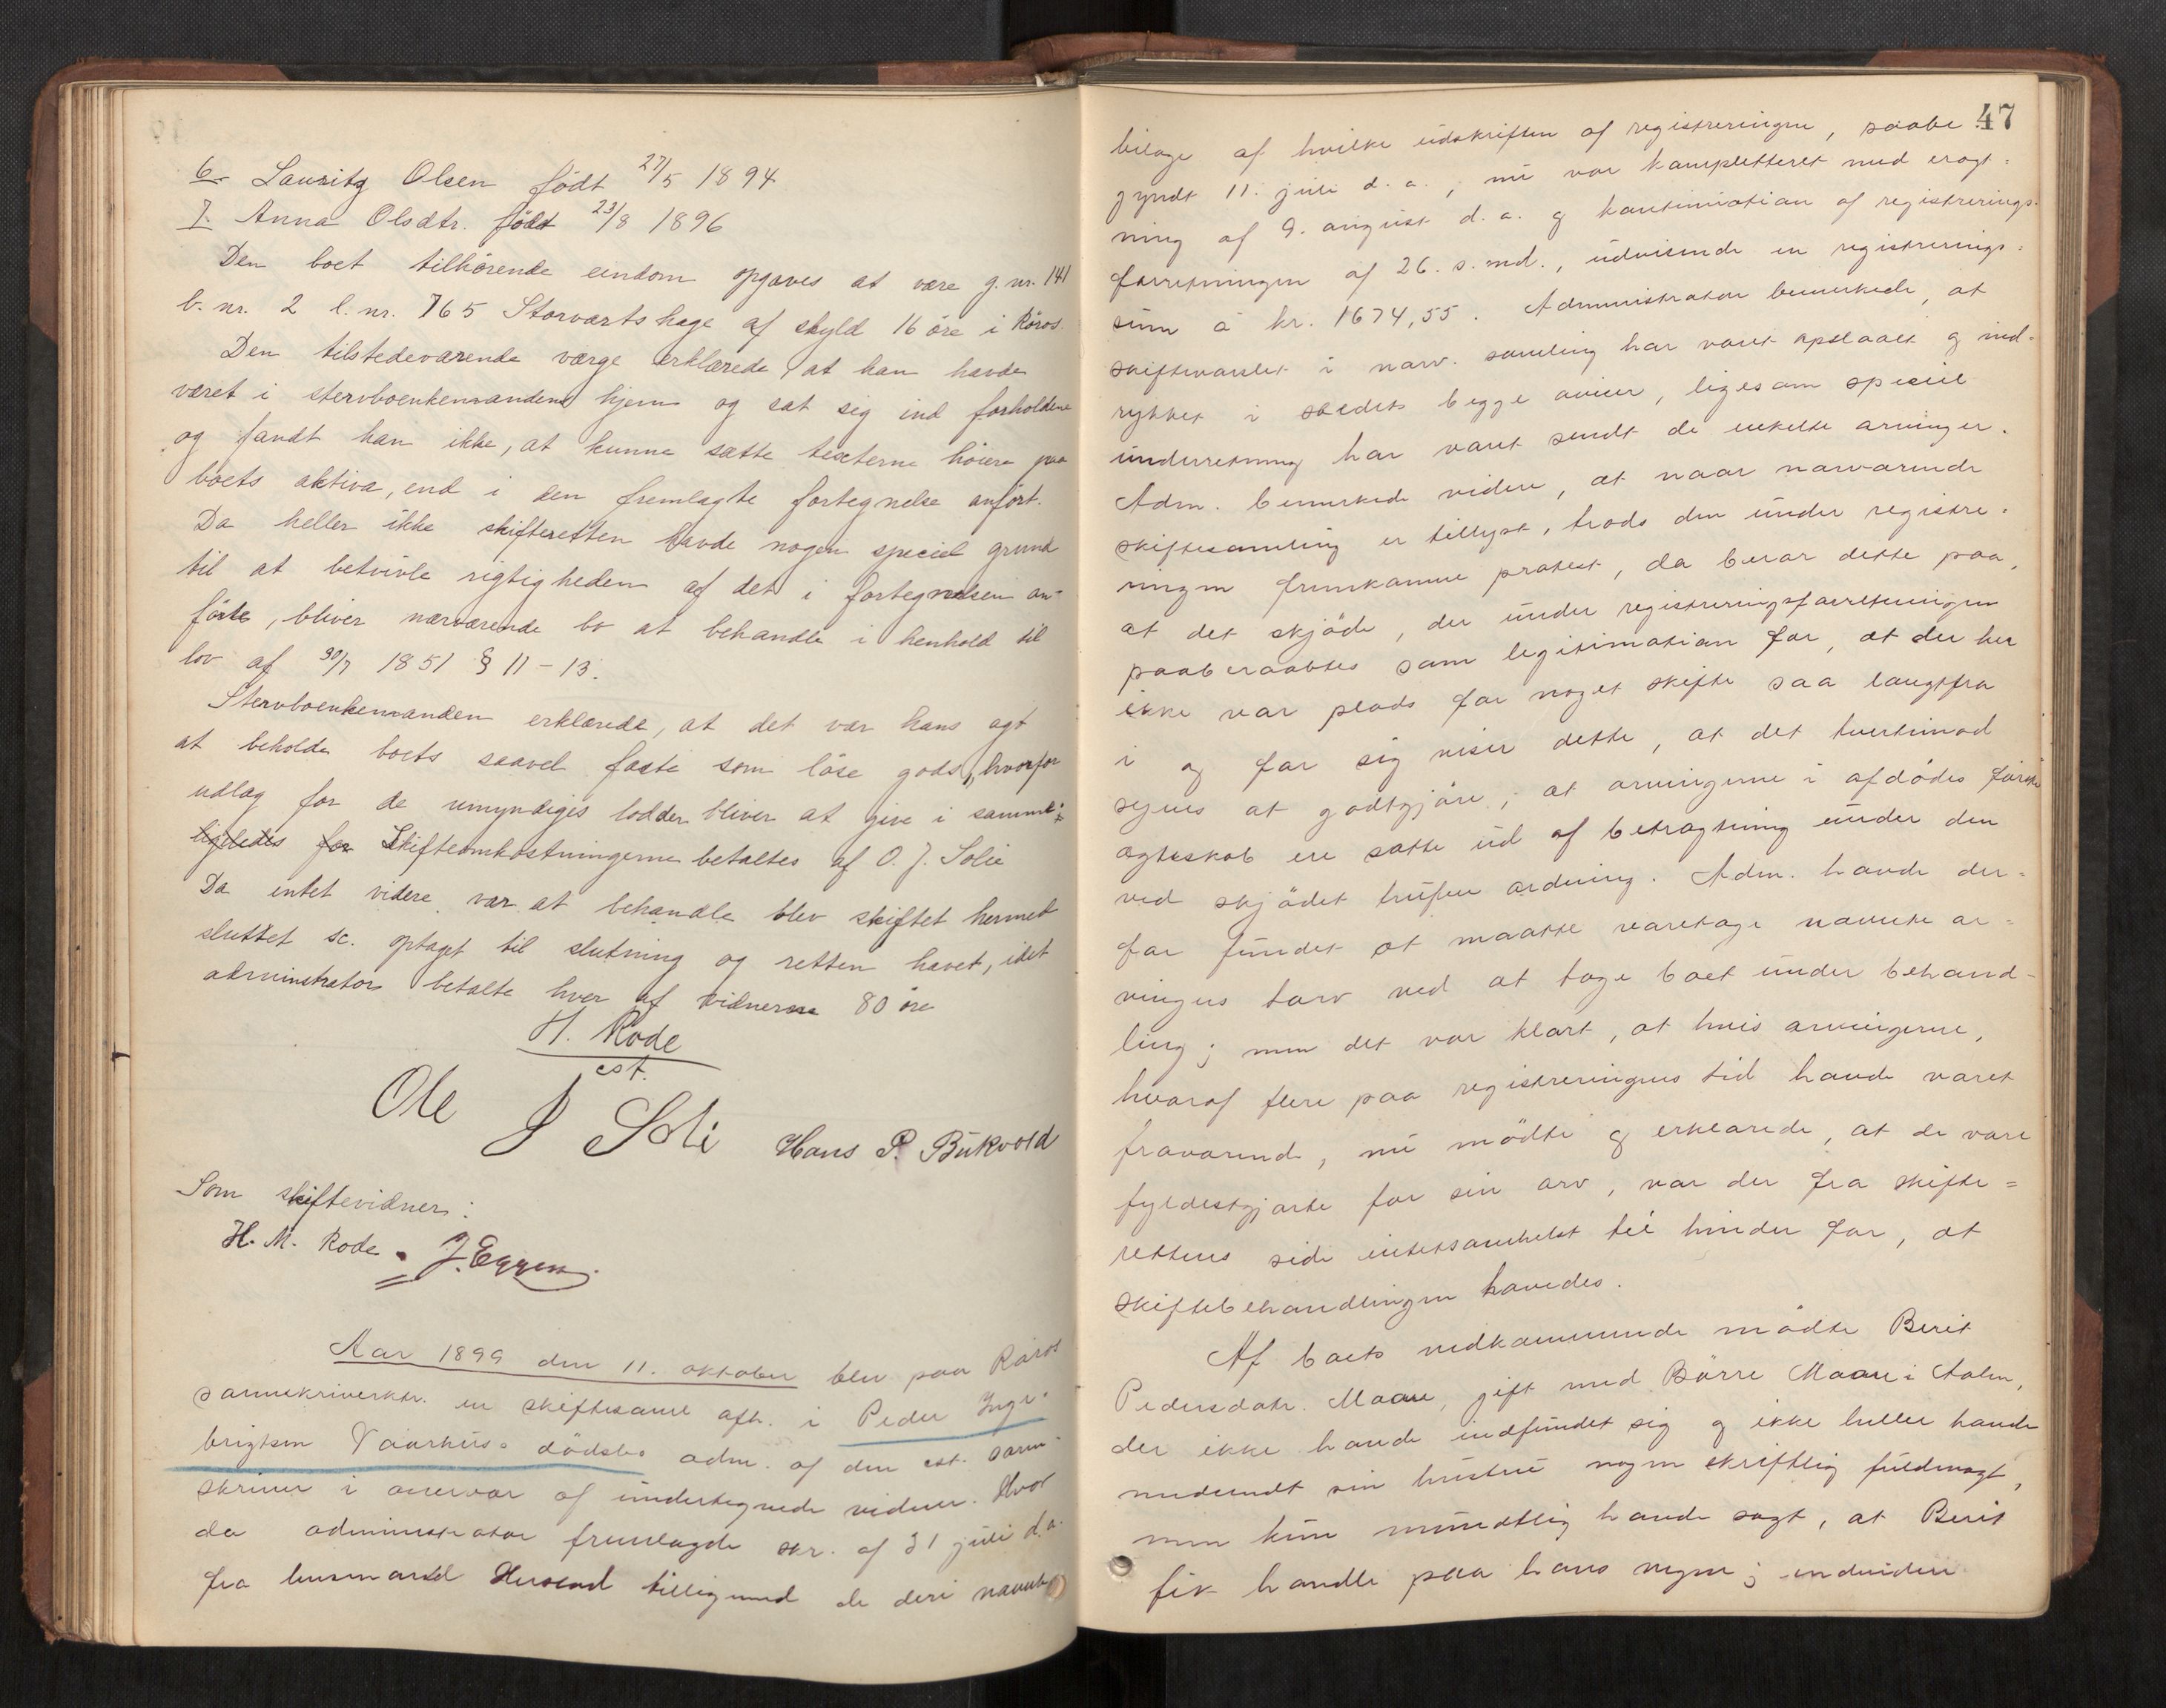 6. Lauritz Olsen født 27/5 1894
7. Anna Olsdtr. født 23/8 1896
Den boet tilhørende eiendom opgaves at være g.nr. 141
b.nr. 2 l.nr. 765 Storvartshage af skyld 16 øre i Röros.
Den tilstedeværende værge erklærede, at han havde
været i stervboenkemandens hjem og sat sig ind forholdene
og fandt han ikke, at kunne sætte taxterne høiere paa
boets aktiva, end i den fremlagte fortegnelse anført.
Da heller ikke skifteretten havde nogen speciel grund
til at betvivle rigtigheden af det i fortegnelsen an-
førte, bliver nærværende bo at behandle i henhold til
lov af 30/7 1851 § 11-13.
Stervboenkemanden erklærede, at det var hans agt
at beholde boets saavel faste som løse gods, hvorfor
udlæg for de umyndiges lodder bliver at give i samme;
ligeledes for Skifteomkostningerne betaltes af O. J. Solie
Da intet videre var at behandle blev skiftet hermed
sluttet sc. optaget til slutning og retten hævet, idet
administrator betalte hver af vidnerne 80 øre
H. Rode
cst.
Ole J Soli Hans P. Bukvold
Som skiftevidner:
H. M. Rode. J. Eggen
Aar 1899 den 11. oktober blev paa Røros
sorenskriverktr. en skiftesaml afh. i Peder Inge-
brigtsen Vaarhus's dødsbo adm. af den cst. soren-
skriver i overvær af undertegnede vidner. Hvor
da administrator fremlagde skr. af 31 juli d.a.
fra lensmand tilligemed de deri nævnte
47
bilage af hvilke udskriften af registreringen, paabe-
gyndt 11. juli d.a., nu var kompletteret med eragt-
ning af 9. august d.a. og kontinuation af registrerings-
forretningen af 26. s.md., udvisende en registrerings-
sum à kr. 1674,55. Administrator bemerkede, at
skiftevarslet i nærv. samling har været opslaaet og ind-
rykket i stedets begge aviser, ligesom speciel
underretning har været sendt de enkelte arvinger.
Adm. bemerkede videre, at naar nærværende
skiftesamling er tillyst, trods den under registre-
ringen fremkomne protest, da beror dette paa,
at det skjøde, der under registreringsforretningen
paaberaabtes som legitimation for, at der her
ikke var plads for noget skifte saa langtfra
i og for sig viser dette, at det tvertimod
synes at godtgjøre, at arvingerne i afdødes første
ægteskab ere satte ud af betragtning under den
ved skjødet trufne ordning. Adm. havde der-
for fundet at maatte varetage nævnte ar-
vingers tarv ved at tage boet under behand-
ling; men det var klart, at hvis arvingerne,
hvoraf flere paa registreringens tid havde været
fraværende, nu mødte og erklærede, at de vare
fyldestgjorte for sin arv, var der fra skifte-
rettens side intetsomhelst til hinder for, at
skiftebehandlingen hævedes.
Af boets vedkommende mødte Berit
Pedersdatr. Moane, gift med Børre Moane i Aalen,
der ikke havde indfundet sig og ikke heller havde
medsendt sin hustru nogen skriftlig fuldmagt,
men kun mundtlig havde sagt, at Berit
fik handle paa hans vegne; endvidere